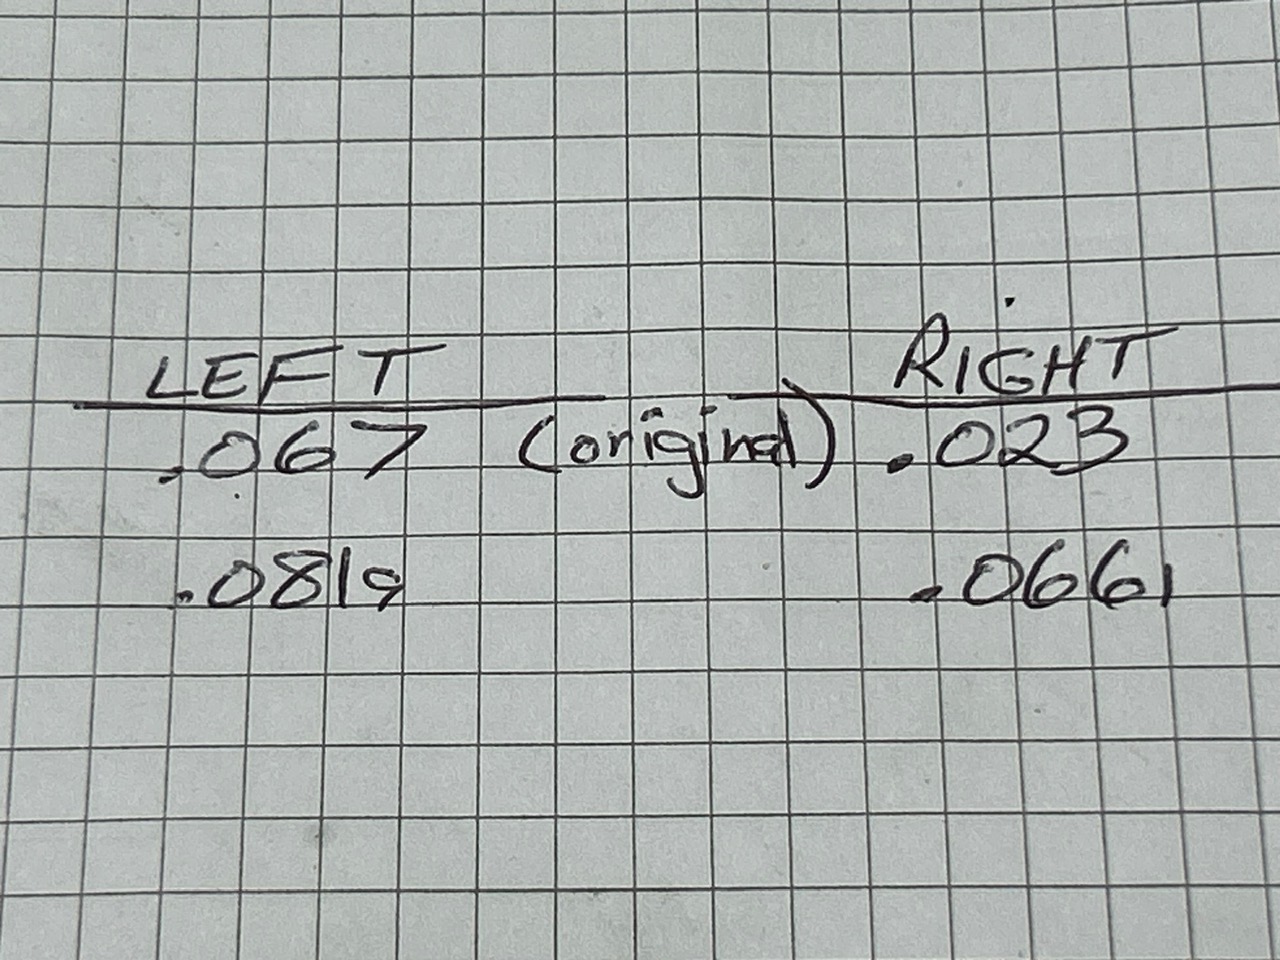 LEFT RIGHT
.067 (original) .023
.0819 .0661